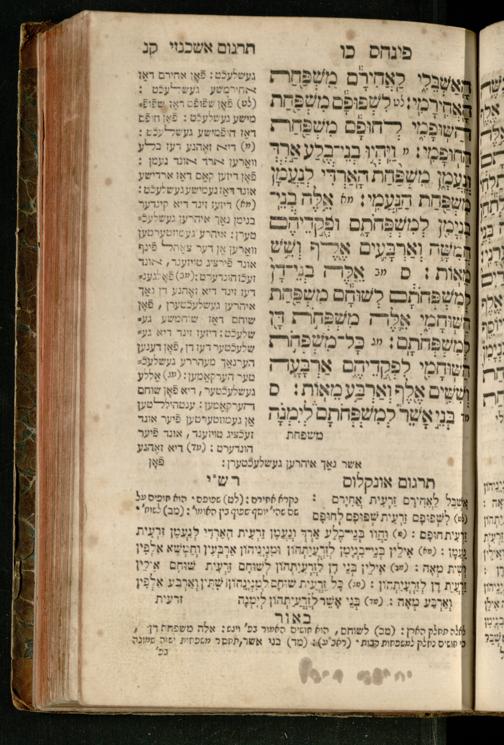 תרגום אשכנזי קנ
פינחס כו
האשבלי לאחירם משפחת
האחירמי: לט לשפופם משפחת
השופמי לחופם משפחת
החופמי: מ ויהיו בני־בלע ארד
ונעמן משפחת הארדי לנעמן
משפחת הנעמי: מא אלה בני־
בנימן למשפחתם ופקדיהם
חמשה וארבעים אלף ושש
מאות: ס מב אלה בני־דן
למשפחתם לשוחם משפחת
השוחמי אלה משפחת דן
למשפחתם: מג כל־משפחת
השוחמי לפקדיהם ארבעה
וששים אלף וארבע מאות: ס
מד בני אשר למשפחתם לימנה
משפחת
געשלעכט: פֿאן אחירם דאז
אחירמישע געשלעכט:
(לט) פֿאן שפופם דאז שופ־
מישע געשלעכט: פֿאן חופם
דאז חופמישע געשלעכט:
(מ) דיא זאהנע דעז בלע
ווארען ארד אונד נעמן:
פֿאן דיזען קאם דאז ארדישע
אונד דאז נעמישע געשלעכט:
(מא) דיזע זינד דיא קינדער
בנימן נאך איהרען געשלעכ־
טערן: איהרע געמוסטערטען
ווארען אן דער צאהל פֿינף
אונד פֿירציג טויזענד, אונד
זעכזהונדערט: (מב) פֿאלגענ־
דעז זינד דיא זאהנע דן נאך
איהרען געשלעכטערן, פֿאן
שוחם דאז שוחמישע גע־
שלעכט: דיזעז זינד דיא גע־
שלעכטער דעז דן, פֿאן דענען
הערנאך מעהררע געשלעכ־
טער הערקאמען: (מג) אללע
געשלעכטער, דיא פֿאן שוחם
הערקאמען: ענטהילטען
אן געמוסטערטען פֿיער אונד
זעכציג טויזענד, אונד פֿיער
הונדערט: (מד) דיא זאהנע
אשר נאך איהרען געשלעכטערן: פֿאן
תרגום אונקלוס
אשבל לאחירם זרעית אחירם:
(לט) לשפופם זרעית שפופם לחופם
זרעית חופם: (מ) והוו בני־בלע ארד ונעמן זרעית הארדי לנעמן זרעית
נעמן: (מא) אילין בני־בנימן לזרעיתהון ומניניהון ארבעין וחמשא אלפין
ושית מאה: (מב) אילין בני דן לזרעיתהון לשוחם זרעית שוחם אילין
זרעית דן לזרעיתהון: (מג) כל זרעית שוחם למניניהון שתין וארבע אלפין
וארבע מאה: (מד) בני אשר לזרעיתהון לימנה זרעית
רש״י
נקרא אחירם: (לט) שפופם. הוא מופים על
שם שהי׳ יוסף שפוף בין האומו׳: (מב) לשוח׳.
באור
לאלה תחלק הארן: (מב) לשוחם, הוא חושים האמור בפ׳ ויגש: אלה משפחת דן,
(מד) בני אשר,